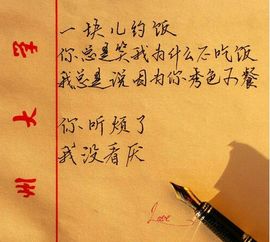 一块儿约饭
你总是笑我为什么不吃饭
我总是说因为你秀色可餐
你听烦了
我没看厌
州大学
Love